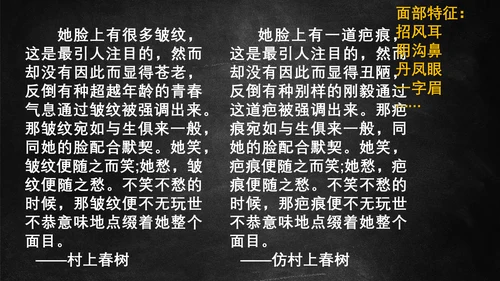 她脸上有很多皱纹，
这是最引人注目的，然而
却没有因此而显得苍老，
反倒有种超越年龄的青春
气息通过皱纹被强调出来。
那皱纹宛如与生俱来一般，
同她的脸配合默契。她笑，
皱纹便随之而笑;她愁，皱
纹便随之愁。不笑不愁的
时候，那皱纹便不无玩世
不恭意味地点缀着她整个
面目。
——村上春树
她脸上有一道疤痕，
这是最引人注目的，然而
却没有因此而显得丑陋，
反倒有种别样的刚毅通过
这道疤被强调出来。那疤
痕宛如与生俱来一般，同
她的脸配合默契。她笑，
疤痕便随之而笑;她愁，疤
痕便随之愁。不笑不愁的
时候，那疤痕便不无玩世
不恭意味地点缀着她整个
面目。
——仿村上春树
面部特征：
招风耳
阴沟鼻
丹凤眼
一字眉
……